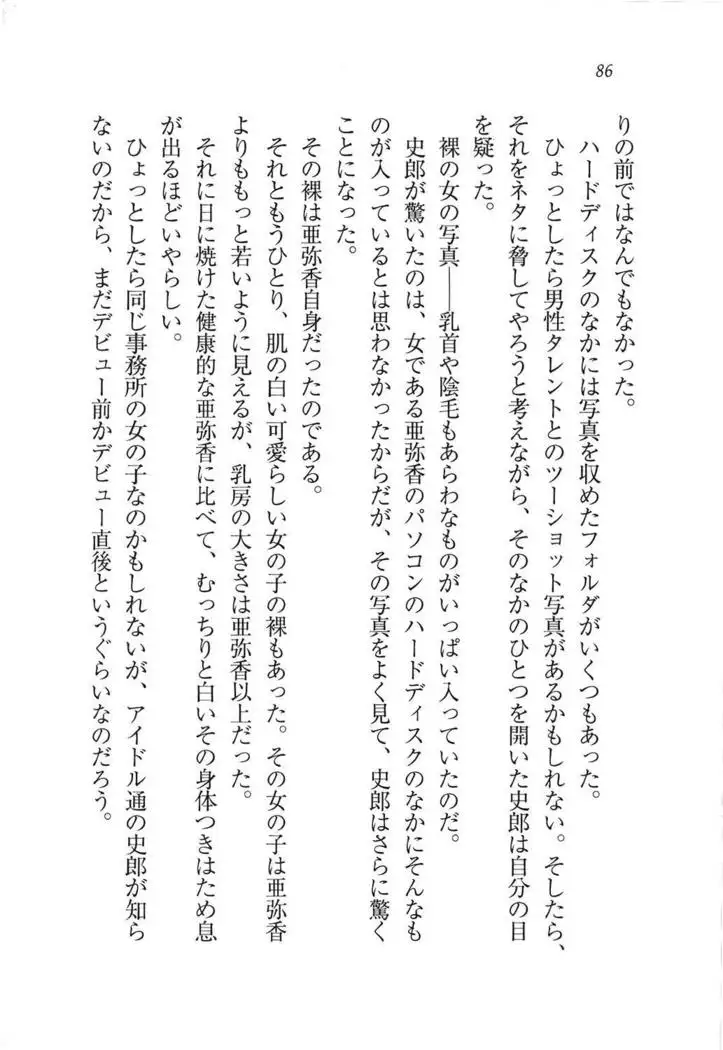 86
りの前ではなんでもなかった。
ハードディスクのなかには写真を収めたフォルダがいくつもあった。
ひょっとしたら男性タレントとのツーショット写真があるかもしれない。そしたら、
それをネタに脅してやろうと考えながら、そのなかのひとつを開いた史郎は自分の目
を疑った。
裸の女の写真――乳首や陰毛もあらわなものがいっぱい入っていたのだ。
史郎が驚いたのは、女である亜弥香のパソコンのハードディスクのなかにそんなも
のが入っているとは思わなかったからだが、その写真をよく見て、史郎はさらに驚く
ことになった。
その裸は亜弥香自身だったのである。
それともうひとり、肌の白い可愛らしい女の子の裸もあった。その女の子は亜弥香
よりももっと若いように見えるが、乳房の大きさは亜弥香以上だった。
それに日に焼けた健康的な亜弥香に比べて、むっちりと白いその身体つきはため息
が出るほどいやらしい。
ひょっとしたら同じ事務所の女の子なのかもしれないが、アイドル通の史郎が知ら
ないのだから、まだデビュー前かデビュー直後というぐらいなのだろう。